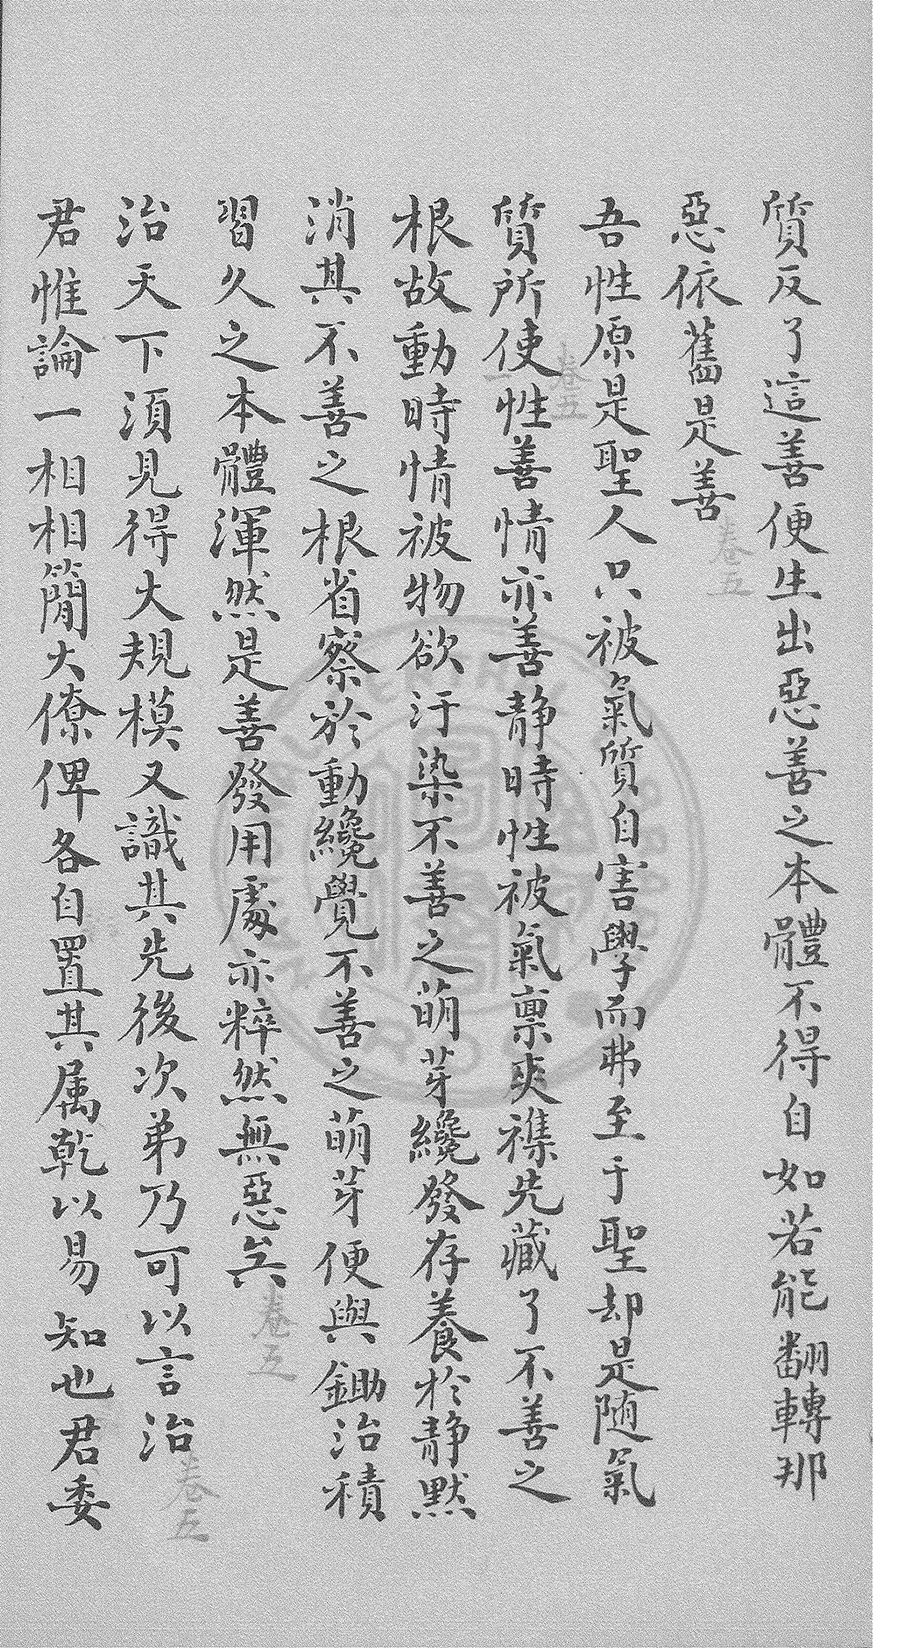 質反了這善便生出惡善之本體不得自如若能翻轉那
惡依舊是善
卷五
吾性原是聖人只被氣質自害學而弗至于聖却是随氣
卷五
質所使性善情亦善静時性被氣禀夾襍先藏了不善之
根故動時情被物欲汙染不善之萌芽纔發存養於静默
消其不善之根省察於動纔覺不善之萌芽便與鋤治積
習久之本體渾然是善發用處亦粹然無惡矣
卷五
治天下須見得大規模又識其先後次弟乃可以言治
卷五
君惟論一相相簡大僚俾各自置其属乾以易知也君委